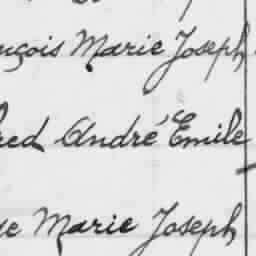 nçois Marie Joseph
red André Emile
ue Marie Joseph